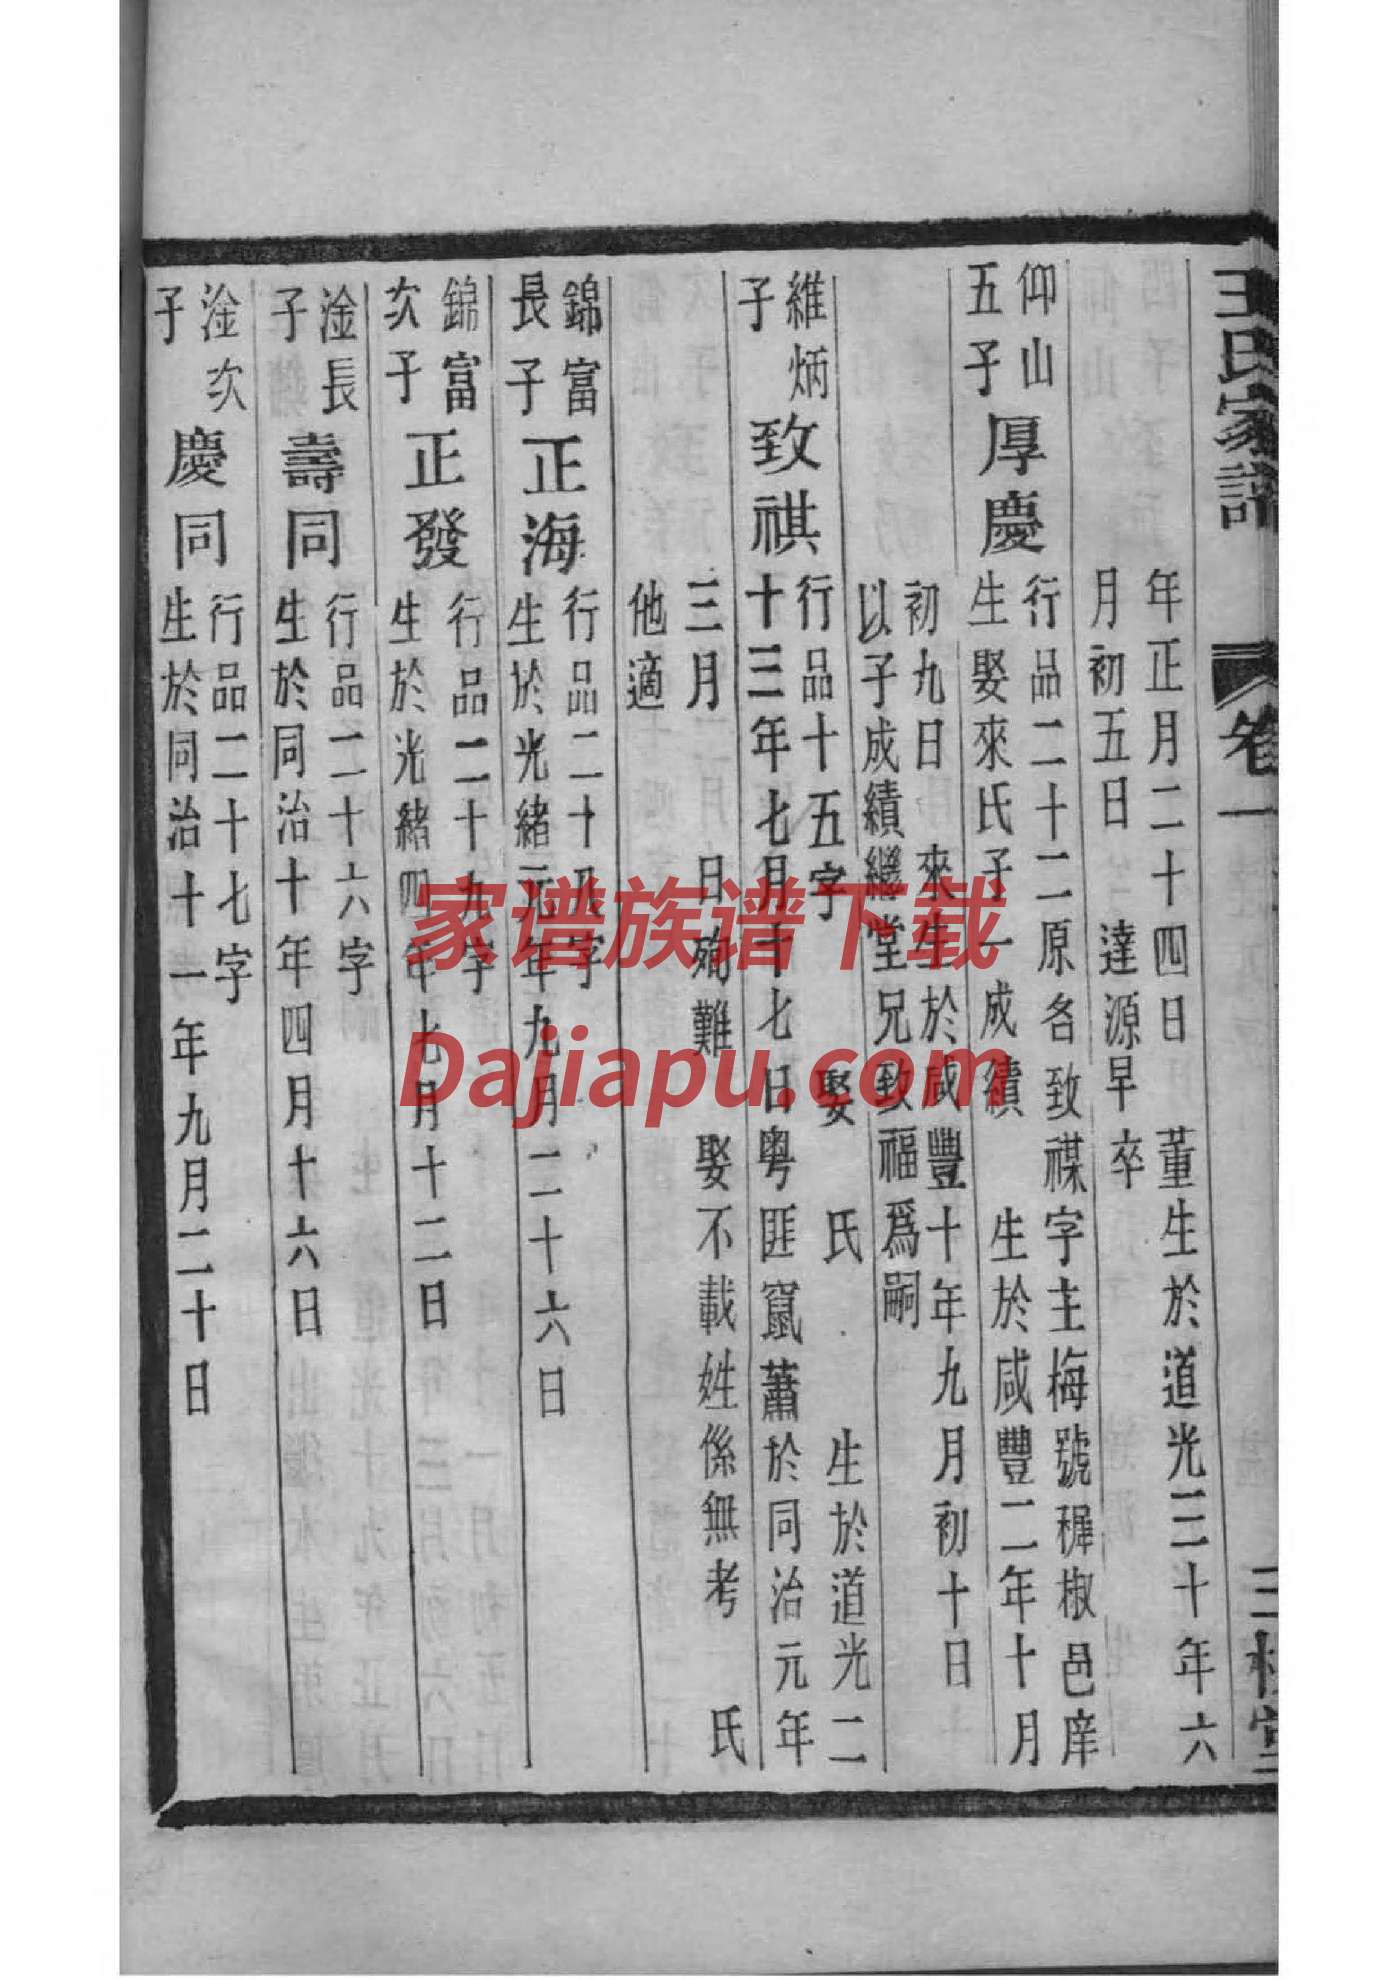 王氏家譜
卷一
三槐堂
年正月二十四日　董生於道光三十年六
月初五日　達源早卒
仰山
五子
厚慶
行品二十二原名致祺字主梅號樨椒邑庠
生娶來氏子一成績　生於咸豐二年十月
初九日　來生於咸豐十年九月初十日
以子成績繼堂兄致福爲嗣
維炳
子
致祺
行品十五字　娶　氏　生於道光二
十三年七月十七日粵匪竄蕭於同治元年
三月　日殉難　娶不載姓係無考　氏
他適
錦富
長子
正海
行品二十八字
生於光緒元年九月二十六日
錦富
次子
正發
行品二十九字
生於光緒四年七月十二日
淦長
子
壽同
行品二十六字
生於同治十年四月十六日
淦次
子
慶同
行品二十七字
生於同治十一年九月二十日
家谱族谱下载
Dajiapu.com